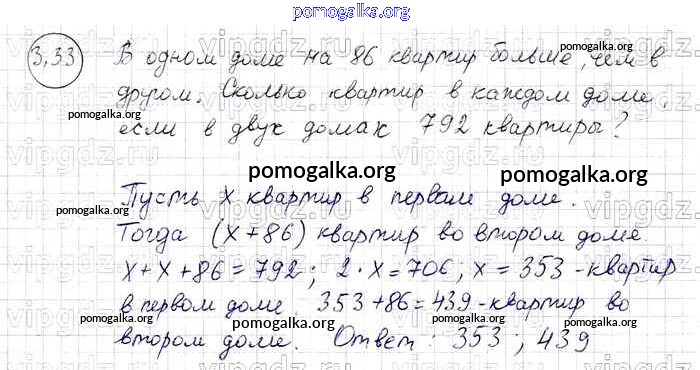 pomogalka.org
3.33 В одном доме на 86 квартир больше, чем в
другом. Сколько квартир в каждом доме,
если в двух домах 792 квартиры?
Пусть x квартир в первом доме.
Тогда (x+86) квартир во втором доме
x+x+86=792; 2·x=706; x=353-квартир
в первом доме. 353+86=439-квартир во
втором доме. Ответ: 353; 439
pomogalka.org
pomogalka.org
pomogalka.org
pomogalka.org
pomogalka.org
pomogalka.org
pomogalka.org
pomogalka.org
pomogalka.org
pomogalka.org
vipgdz.ru
vipgdz.ru